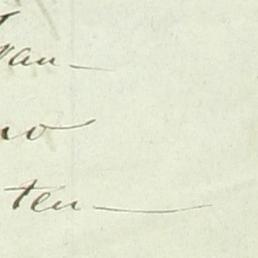 van
no
ten